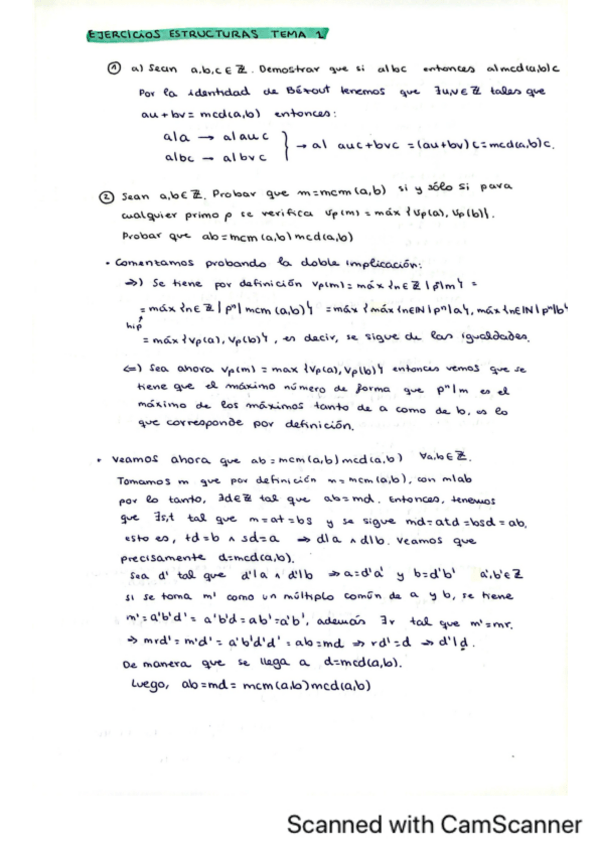 EJERCICIOS ESTRUCTURAS TEMA 1
① a) Sean a,b,c ∈ ℤ. Demostrar que si a|bc entonces a|mcd(a,b)c
Por la identidad de Bézout tenemos que ∃u,v ∈ ℤ tales que
au + bv = mcd(a,b) entonces:
a|a → a|auc
a|bc → a|bvc } → a| auc+bvc = (au+bv)c = mcd(a,b)c.
② Sean a,b ∈ ℤ. Probar que m=mcm(a,b) si y sólo si para
cualquier primo p se verifica vp(m) = máx {vp(a), vp(b)}.
Probar que ab=mcm(a,b)mcd(a,b)
• Comentamos probando la doble implicación:
⇒) Se tiene por definición vp(m) = máx {n∈ℤ | pⁿ|m} =
= máx {n∈ℤ | pⁿ | mcm(a,b)} = máx {máx {n∈ℕ | pⁿ|a}, máx {n∈ℕ | pⁿ|b}
hip
= máx {vp(a), vp(b)}, es decir, se sigue de las igualdades.
⇐) Sea ahora vp(m) = max {vp(a), vp(b)} entonces vemos que se
tiene que el máximo número de forma que pⁿ|m es el
máximo de los máximos tanto de a como de b, es lo
que corresponde por definición.
• Veamos ahora que ab = mcm(a,b) mcd(a,b) ∀a,b ∈ ℤ.
Tomamos m que por definición m = mcm(a,b), con m|ab
por lo tanto, ∃d∈ℤ tal que ab=md. Entonces, tenemos
que ∃s,t tal que m=at=bs y se sigue md=atd=bsd=ab,
esto es, td=b ∧ sd=a ⇒ d|a ∧ d|b. Veamos que
precisamente d=mcd(a,b).
Sea d' tal que d'|a ∧ d'|b ⇒ a=d'a' y b=d'b' a',b'∈ℤ
si se toma m' como un múltiplo común de a y b, se tiene
m'=a'b'd' = a'b'd=ab'=a'b', además ∃r tal que m'=mr.
⇒ mrd' = m'd' = a'b'd'd' = ab=md ⇒ rd'=d ⇒ d'|d.
De manera que se llega a d=mcd(a,b).
Luego, ab=md= mcm(a,b)mcd(a,b)
Scanned with CamScanner